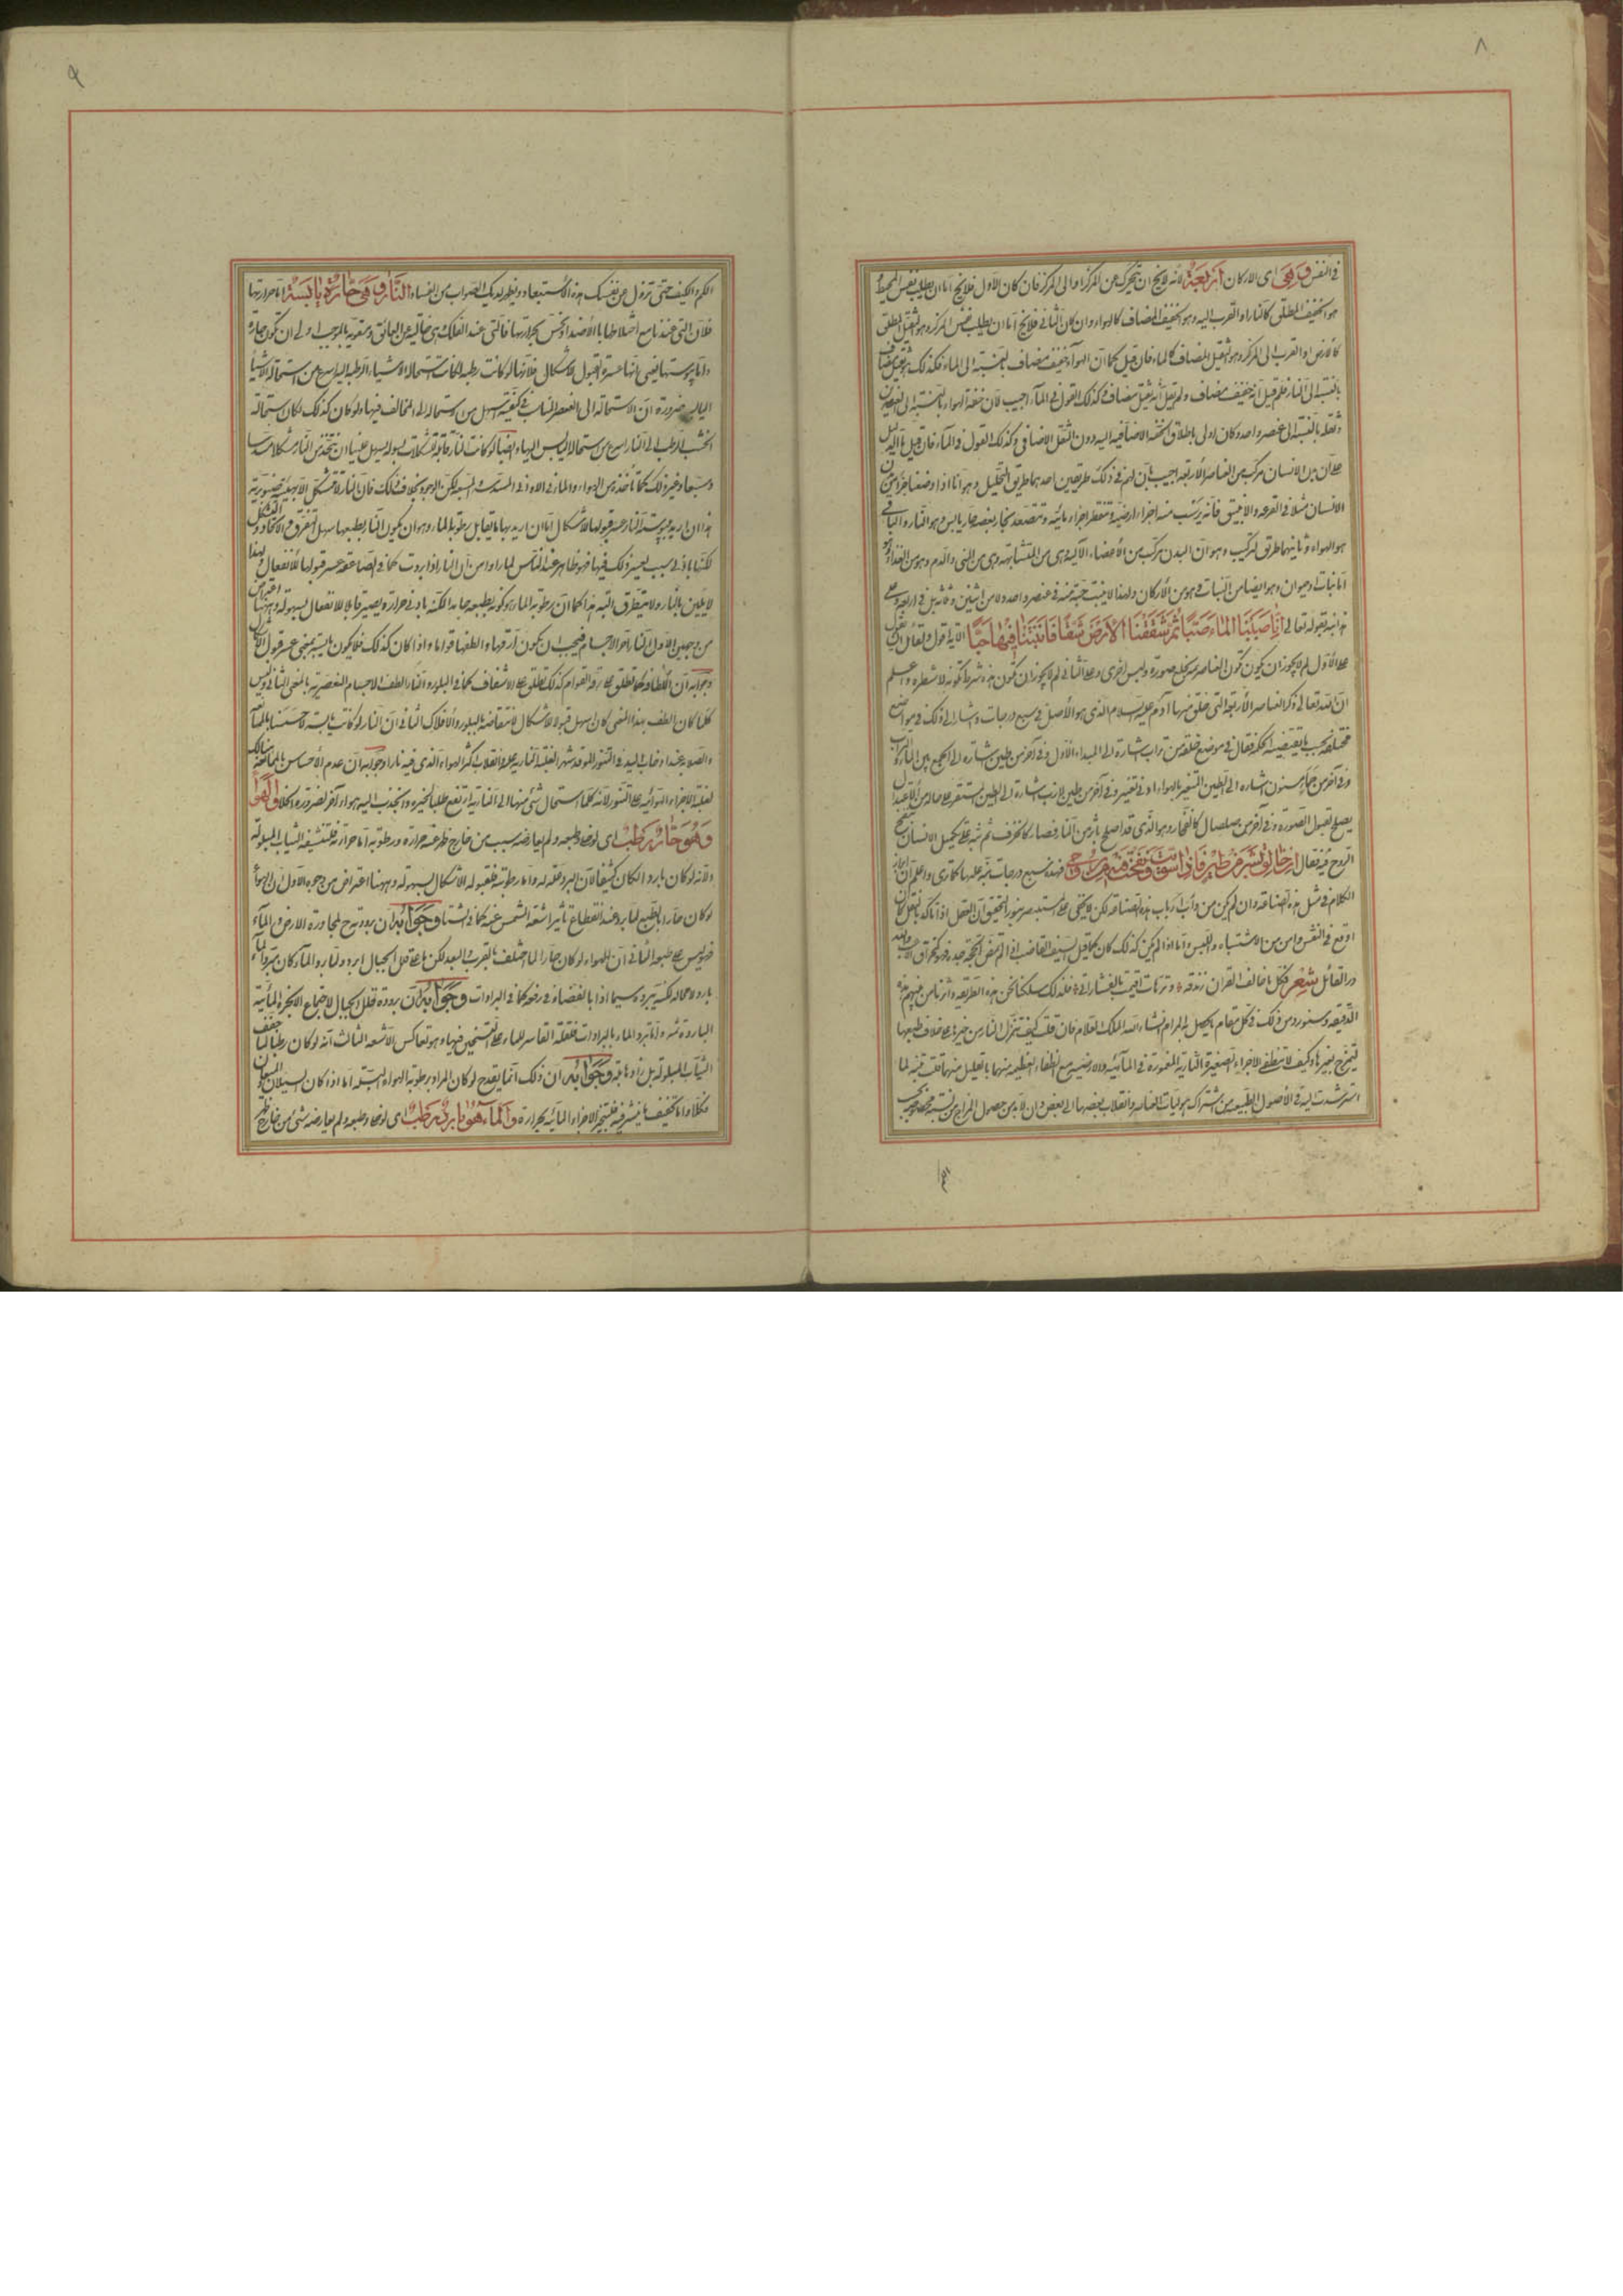 ٨
في النفس وهى اى الاركان اربعة لانه لا يخ ان يتحرك عن المركز او الى المركز فان كان الاول فلا يخ اما ان يطلب نفس المحيط
هو الخفيف المطلق كالنار او القرب اليه وهو الخفيف المضاف كالهواء وان كان الثانى فلا يخ اما ان يطلب نفس المركز وهو الثقيل المطلق
كالارض او القرب الى المركز وهو الثقيل المضاف كالماء فان قيل كما ان الهواء خفيف مضاف بالنسبة الى الماء فكذلك هو ثقيل مضاف
بالنسبة الى النار فلم قيل انه خفيف مضاف ولم يقل انه ثقيل مضاف وكذلك القول فى الماء اجيب لان خفة الهواء بالنسبة الى العنصرين
وثقله بالنسبة الى عنصر واحد وكان اولى باطلاق الخفة الاضافية اليه دون الثقل الاضافى وكذلك القول فى الماء فان قيل ما الدليل
على ان بدن الانسان مركب من العناصر الاربعة اجيب بان لهم فى ذلك طريقين احدهما طريق التحليل وهو انا اذا وضعنا جزأ من
الانسان مثلا فى القرعة والانبيق فانه يرسب منه اجزاء ارضية وتقطر اجزاء مائية وتتصعد بخار بعضه حار يابس وهو النار والباقى
هو الهواء وثانيهما طريق التركيب وهو ان البدن مركب من الاعضاء الآلية وهى من المتشابهة وهى من المنى والدم وهو من الغذاء وهو
اما نبات او حيوان وهو ايضا من النبات وهو من الاركان ولهذا لا ينبت حبة فى عنصر واحد ولا من اثنين وثلاثة بل فى اربعة وعلى
هذا نبه بقوله تعالى انا صببنا الماء صبا ثم شققنا الارض شقا فانبتنا فيها حبا الآية اقول ولقائل ان يقول
على الاول لم لا يجوز ان يكون تكون العناصر بخلع صورة ولبس اخرى وعلى الثانى لم لا يجوز ان تكون هذه شرط تكونه لا شطره واعلم
ان الله تعالى ذكر العناصر الاربعة التى خلق منها آدم عليه السلام الذى هو الاصل فى سبع درجات واشار الى ذلك فى مواضع
مختلفة بحسب ما يقتضيه الحكمة فقال فى موضع خلقه من تراب اشارة الى المبدأ الاول وفى آخر من طين اشارة الى الجمع بين الماء والتراب
وفى آخر من حمأ مسنون اشارة الى الطين المتغير بالهواء ادنى تغير وفى آخر من طين لازب اشارة الى الطين المستقر على حال من الاعتدال
يصلح لقبول الصورة وفى آخر من صلصال كالفخار وهو الذى قد اصلح باثر من النار فصار كالخزف ثم نبه على تكميل الانسان بنفخ
الروح فيه فقال انى خالق بشرا من طين فاذا سويته ونفخت فيه من روحى فهذه سبع درجات نبه عليها كما ترى واعلم ان
الكلام فى مثل هذه الصناعة وان لم يكن من دأب ارباب هذه الصناعة لكن لا يخفى على المستبصر بنور التحقيق ان العقل اذا تأكد بالنقل كان
اوقع فى النفس وامن من الاشتباه واللبس واما اذا لم يكن كذلك كان كما قيل السيف القاضب اذا لم تمض الحجة حده فهو مخراق لاعب ولله
در القائل شعر فكل ما خالف القرآن زندقة
الدقيقة وسنورد من ذلك فى كل مقام ما يحصل به المرام ان شاء الله الملك العلام فان قلت كيف تنزل النار من حيزها على خلاف طبعها
تمتزج بغيرها وكيف لا تنطفى الاجزاء الصغيرة النارية المغمورة فى المائية والارضية مع انطفاء العظيم منها بالقليل منهما قلت تنبه لما
استرشدت اليه فى الاصول الطبيعية من اشتراك هيوليات العناصر وانقلاب بعضها الى بعض وان لا بد من حصول المزاج من نسبة مخصوصة بحسب
٩
الكم والكيف حتى تزول عن نفسك هذه الاستبعاد ويظهر لديك الصواب من الفساد النار وهى حارة يابسة اما حرارتها
فلان التى عندنا مع اختلاطها بالاضداد تحس بحرارتها فالتى عند الفلك وهى خالية عن العائق ومقوية بالموجب اولى ان تكون حارة
واما يبوستها يعنى انها عسرة لقبول الاشكال فلانها لو كانت رطبة لكانت استحالة الاشياء الرطبة اليها اسرع من استحالة الاشياء
اليابسة ضرورة ان الاستحالة الى العنصر المناسب فى كيفية اسهل من استحالة الى المخالف فيها ولو كان كذلك لكان استحالة
الخشب الرطب الى النار اسرع من استحالة اليابس اليها وايضا لو كانت النار قابلة للتشكلات بسهولة يسهل علينا ان نتخذ من النار شكلا مسدسا
ومسبعا وغير ذلك كما نأخذ من الهواء والماء فى الاوانى المسدسة والمسبعة لكن الوجود بخلاف ذلك فان النار لا تتشكل الا بهيئة صنوبرية
هذا ان اريد بيبوسة النار عسر قبولها الاشكال اما ان اريد بها ما يقابل رطوبة الماء وهو ان يكون النار بطبعها سهل التفرق والاتحاد والتشكل
لكنها بادنى سبب يعسر ذلك فيها فهو ظاهر عند المتأمل لما راوا من ان النار اذا بردت كما فى الصاعقة عسر قبولها للانفعال ولهذا
لا يلين بالنار ولا يتطرق البتة هذا كما ان رطوبة الماء هو كونه بطبعه جامدا لكنه بادنى حرارة يصير قابلا للانفعال بسهولة وههنا اعتراض
من وجهين الاول ان النار احر الاجسام فيجب ان يكون ارقها والطفها قواما واذا كان كذلك فلا يكون يابسة بمعنى عسر قبول الاشكال
وجوابه ان اللطافة كما تطلق على رقة القوام كذلك تطلق على الاشفاف كما فى البلور والنار الطف الاجسام العنصرية بالمعنى الثانى وليس
كلما كان الطف بهذا المعنى كان اسهل قبولا للاشكال لانتقاضه بالبلور والافلاك الثانى ان النار لو كانت يابسة لاحسسنا بالممانعة
والصلابة عند ادخال اليد فى التنور الموقد شهرا لغلبة النارية عليه وانقلاب اكثر الهواء الذى فيه نارا وجوابه ان عدم الاحساس بالممانعة هنالك
لغلبة الاجزاء الهوائية على التنور لانه كلما استحال شىء منها الى النارية ارتفع طلبا لحيزه وانجذب اليه هواء آخر لضرورة الخلاء والهواء
وهو حار رطب اى لو خلى وطبعه ولم يعارضه سبب من خارج ظهر عنه حرارة ورطوبة اما حرارته فلتنشيفه الثياب المبلولة
ولانه لو كان باردا لكان كثيفا لان البرد علة له واما رطوبته فلقبوله الاشكال بسهولة وههنا اعتراض من وجوه الاول ان الهواء
لو كان حارا بالطبع لما برد عند انقطاع تأثير اشعة الشمس عنه كما فى الشتاء وجوابه ان برودته ح لمجاورة الارض والماء
فهو ليس على طبعه الثانى ان الهواء لو كان حارا لما اختلف بالقرب والبعد لكن ما على قلل الجبال ابرد ولما برد الماء لكان مبرد الماء
باردا لا محالة لكنه يبرده سيما اذا بالغضا فى رفعه كما فى البرادات وجوابه ان برودة قلل الجبال لاجتماع الابخرة المائية
الباردة ثمه واما تبرد الماء بالبرادات فلقلة القاسر للماء على التسخين فيها وهو تعاكس الاشعة الثالث انه لو كان رطبا لما جفف
الثياب المبلولة بل زادها بلة وجوابه ان ذلك انما يقدح لو كان المراد برطوبة الهواء البلة اما اذا كان السيلان والميعان
فكلا واما تجفيف ما ينشر فيه فلتبخر الاجزاء المائية بحرارته والماء هو بارد رطب اى لو خلى وطبعه ولم يعارضه شىء من خارج ظهر